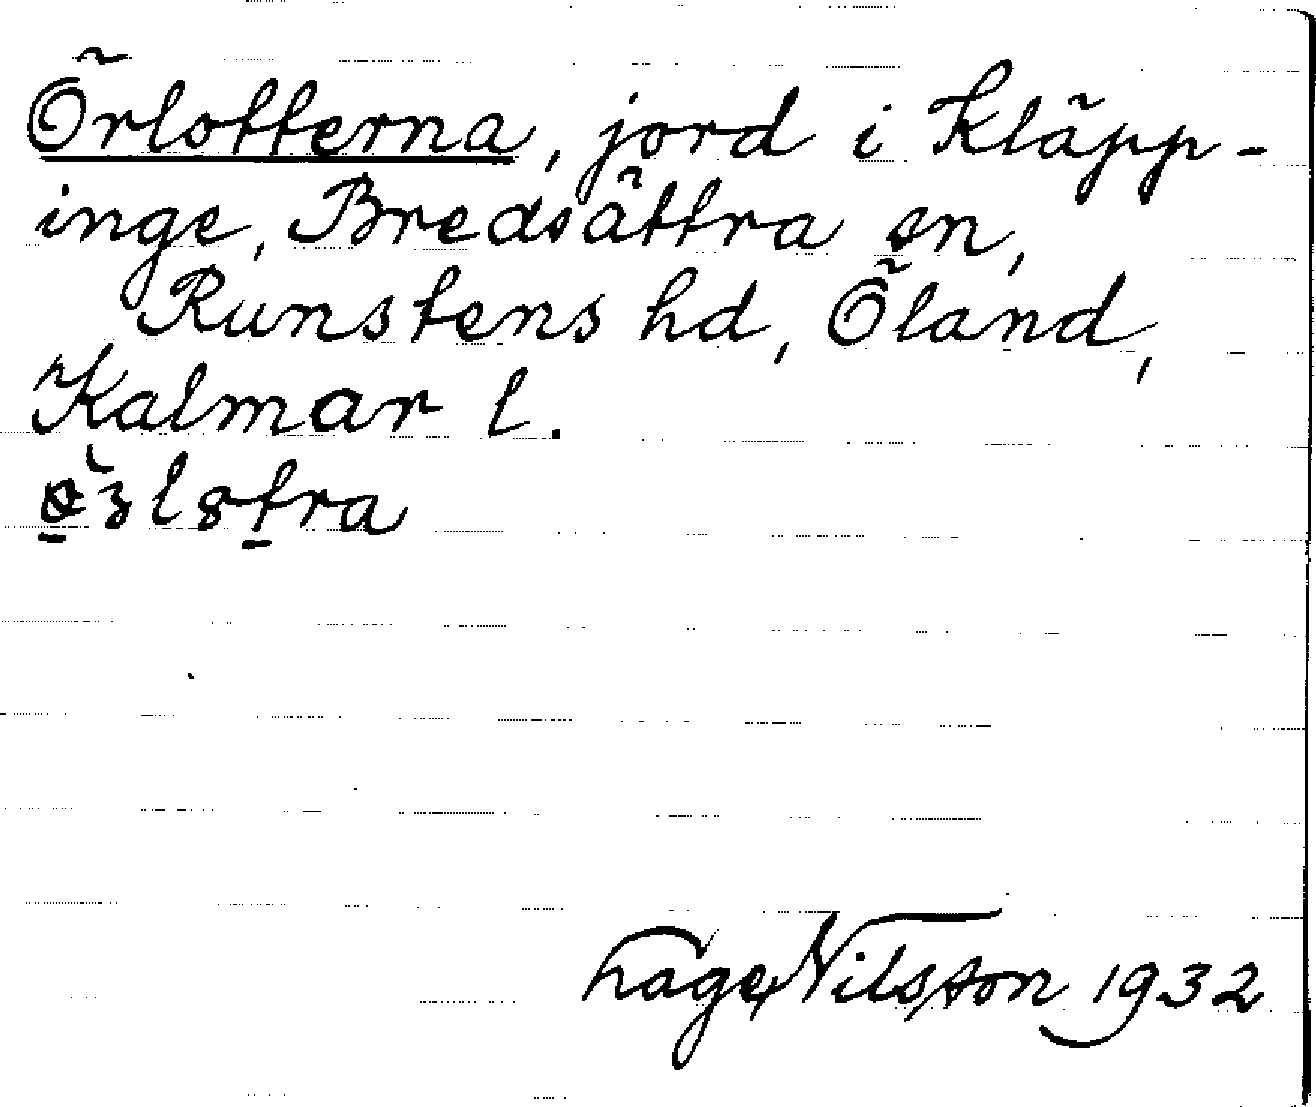 Örlotterna, jord i Kläpp-
inge, Bredsättra sn,
Runstens hd, Öland,
Kalmar l.
Tage Nilsson 1932